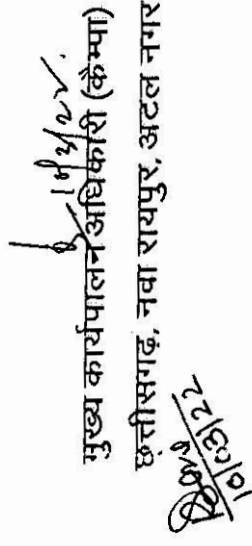 मुख्य कार्यपालन अधिकारी (कैम्पा)
छत्तीसगढ़, नवा रायपुर, अटल नगर
10/03/22